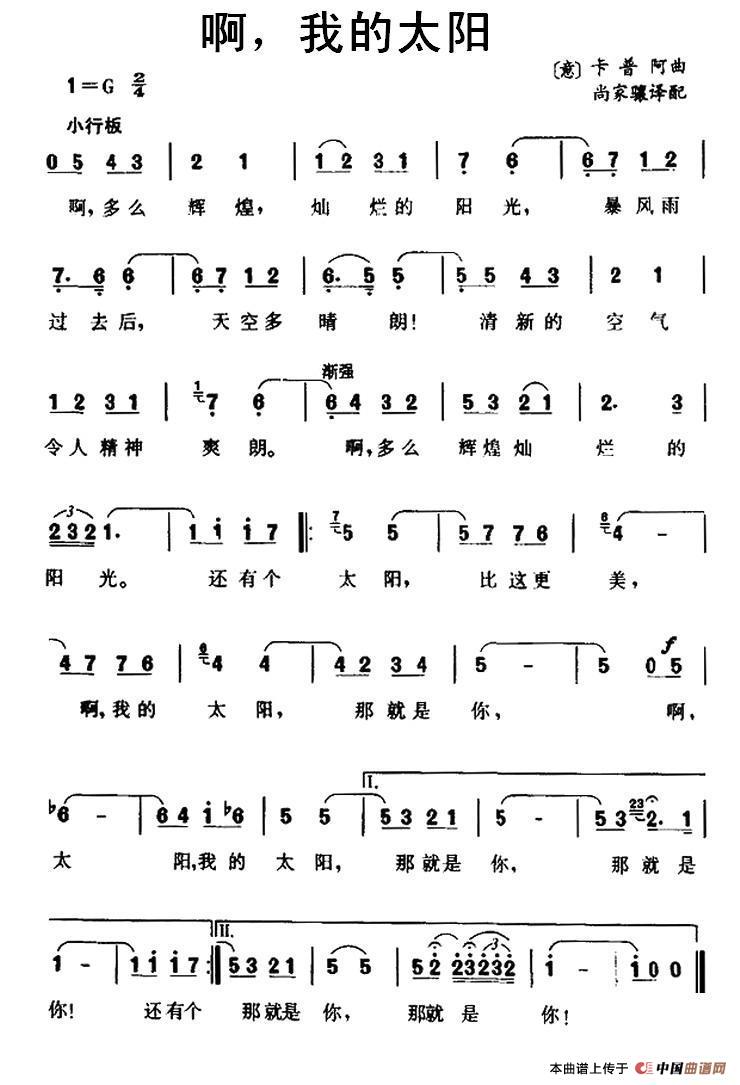 啊，我的太阳
〔意〕卡普阿曲
1=G 2/4
尚家骧译配
小行板
0 5 4 3 | 2 1 | 1 2 3 1 | 7 6 | 6 7 1 2 |
啊，多么 辉煌， 灿烂的 阳光， 暴风雨
7. 6 6 | 6 7 1 2 | 6. 5 5 | 5 5 4 3 | 2 1 |
过去后， 天空多 晴朗！ 清新的 空气
渐强
1 2 3 1 | 1 7 6 | 6 4 3 2 | 5 3 2 1 | 2. 3 |
令人精神 爽朗。 啊，多么 辉煌灿 烂的
3
2 3 2 1. | 1 1 1 7 |: 7 5 5 | 5 7 7 6 | 6 4 - |
阳光。 还有个 太阳， 比这更 美，
4 7 7 6 | 6 4 4 | 4 2 3 4 | 5 - | 5 0 5 |
f
啊，我的 太阳， 那就是 你， 啊，
I.
♭6 - | 6 4 1 ♭6 | 5 5 | 5 3 2 1 | 5 - | 5 3 23 2. 1 |
太 阳，我的 太阳， 那就是 你， 那就是
II.
1 - | 1 1 1 7 :| 5 3 2 1 | 5 5 | 5 2 2 3 2 3 2 | 1 - | 1 0 0 |
3
你！ 还有个 那就是 你， 那就是 你！
本曲谱上传于 中国曲谱网